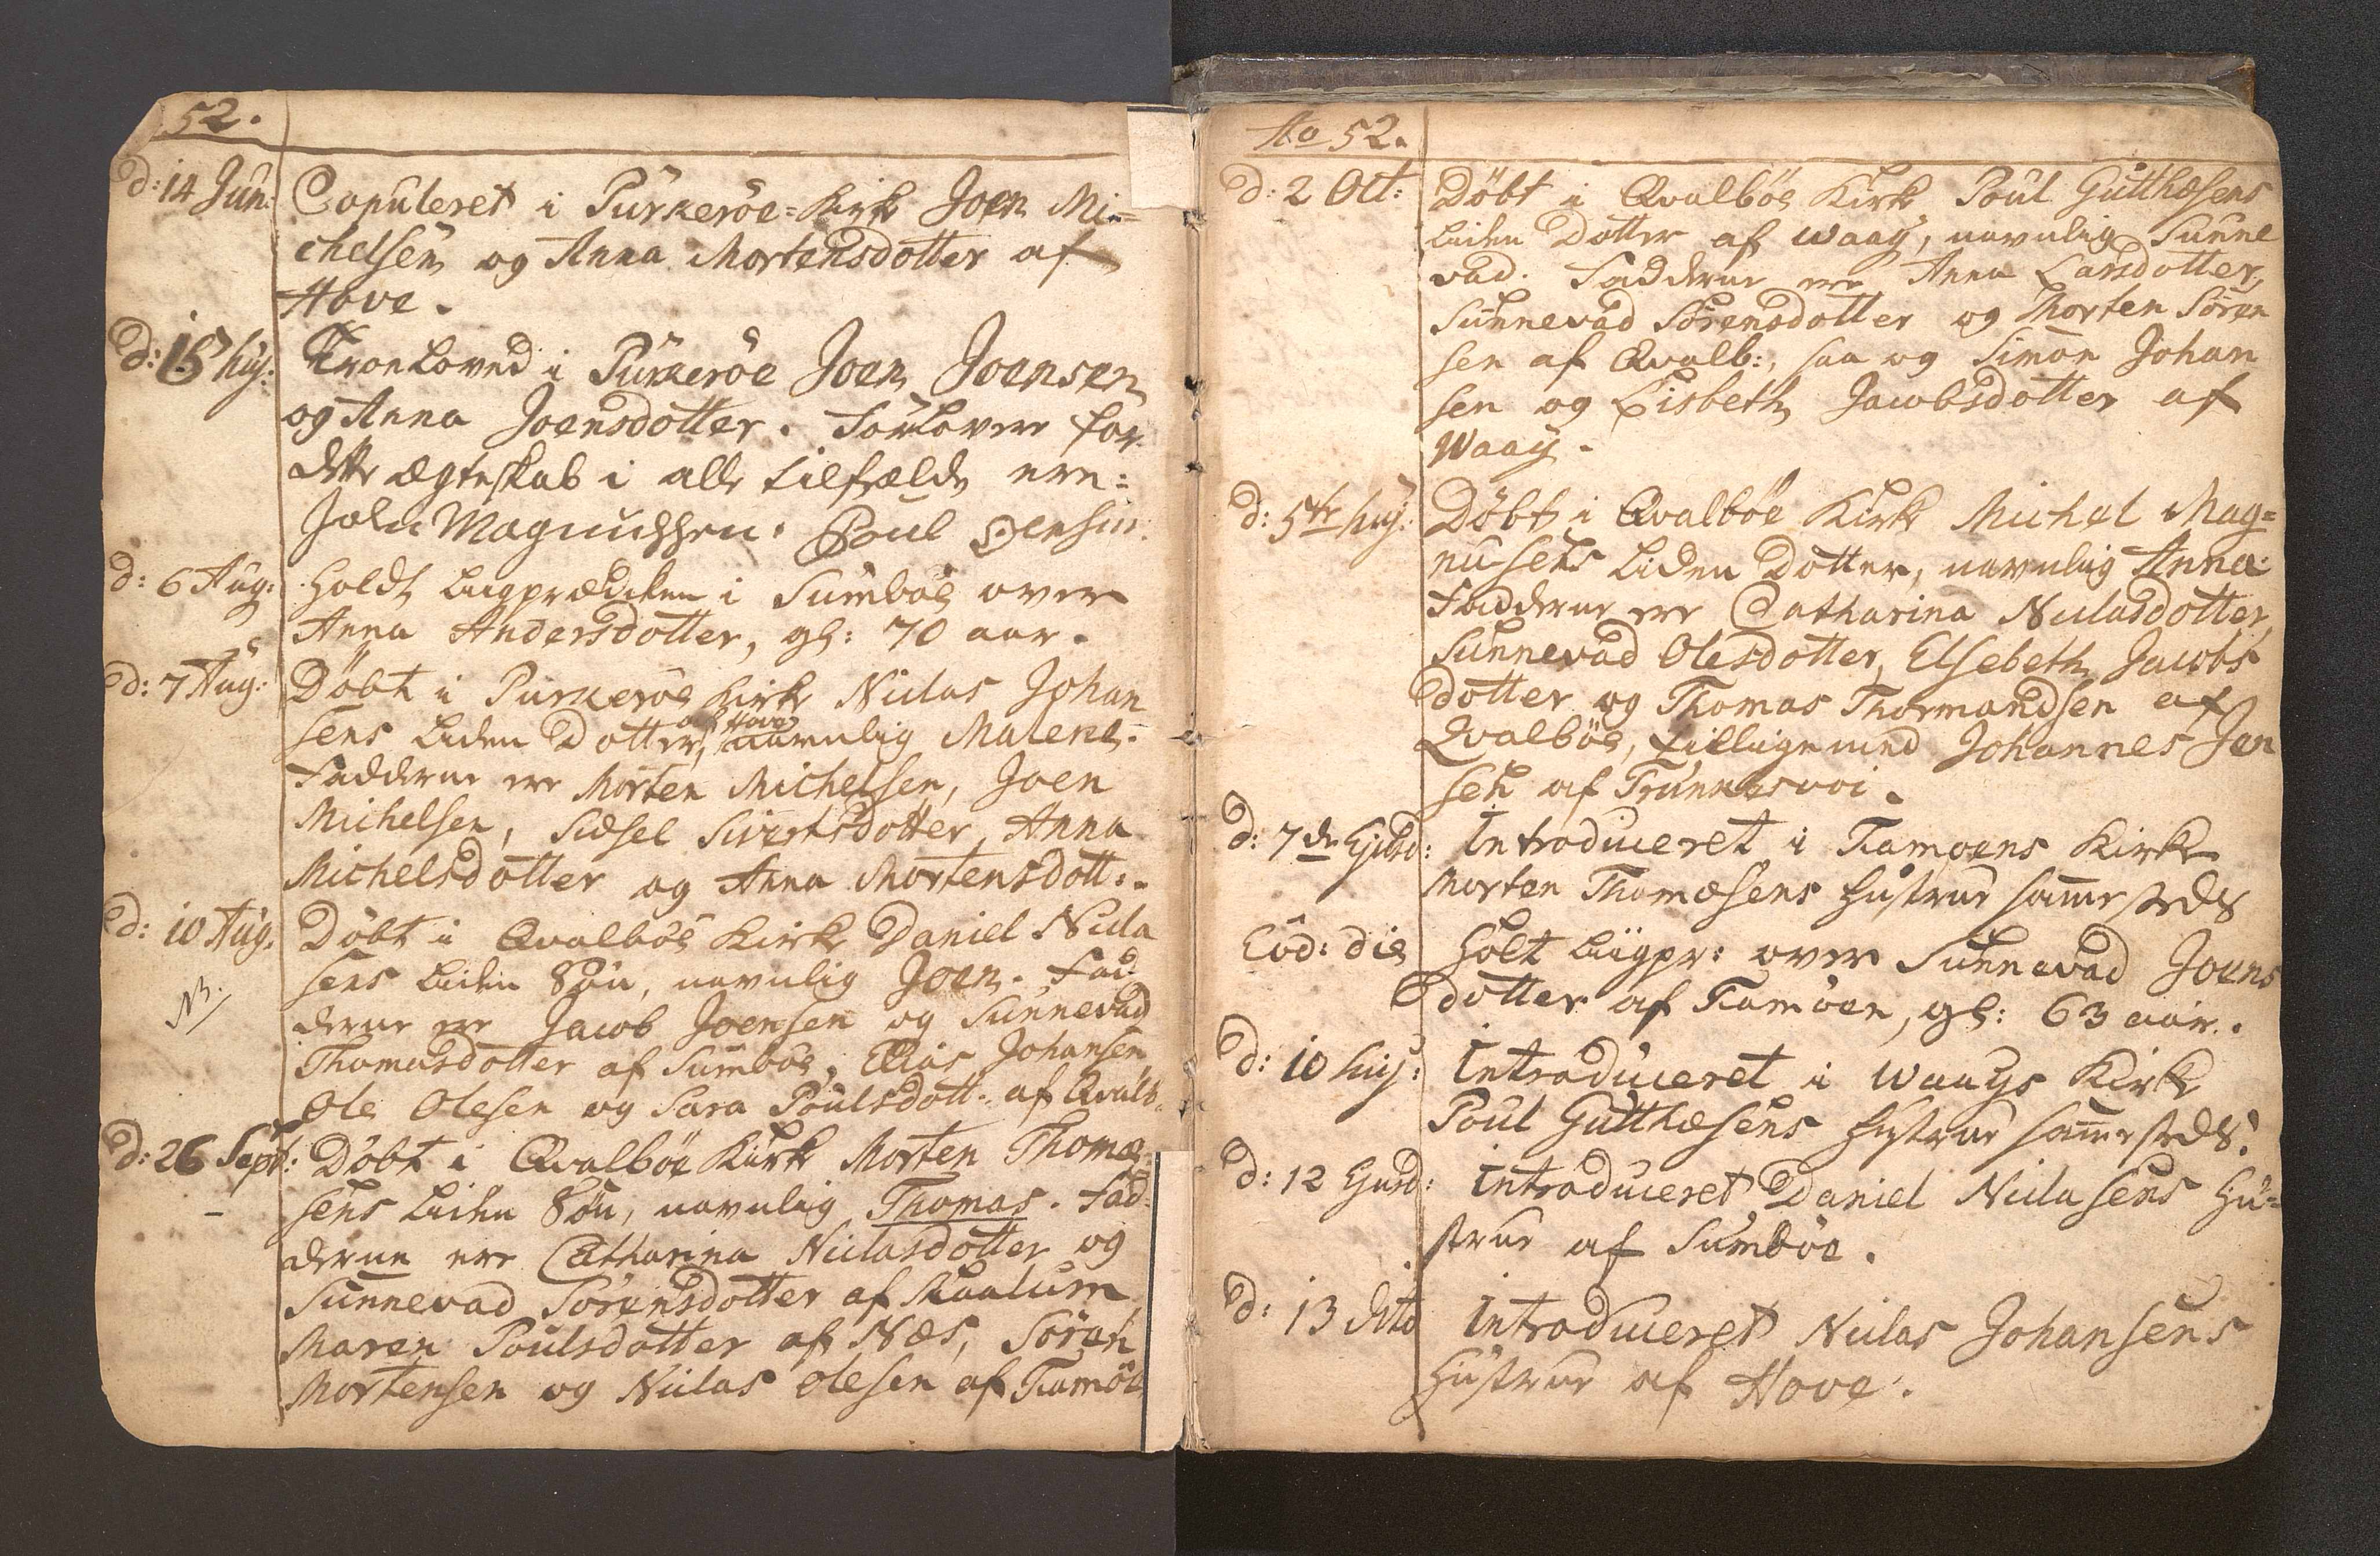 52.
d: 14 Jun: Copuleret i Pürkeröe=Kirke Joen Mi=
chelsen og Anna Mortensdotter af
Hove.
d: 15 huj: Troeloved i Pürkeröe Joen Joensen
og Anna Joensdotter. Forlovere for
dette ægteskab i alle tilfælde ere:
John Magnussen. Poul Jensen.
d: 6 Aug: Holdt liigprædiken i Sumböe over
Anna Andersdotter, gl: 70 aar.
d: 7 Aug: Döbt i Pürkeröe Kirke Niclas Johan
sens liden Dotter, af Hove navnlig Malene.
Fadderne ere Morten Michelsen, Joen
Michelsen, Sidsel Sivertsdotter, Anna
Michelsdotter og Anna Mortensdott:.
d: 10 Aug. Döbt i Qvalböe Kirke Daniel Nicla
NB. sens liden Sön, navnlig Joen. Fad
derne ere Jacob Joensen og Sunnevad
Thomasdotter af Sumböe, Elias Johansen
Ole Olesen og Sara Poulsdott: af Qvalb.
d: 26 Sept: Döbt i Qvalböe Kirke Morten Thomæ
sens liden Sön, navnlig Thomas. Fad
derne ere Catharina Niclasdotter og
Sunnevad Sörensdotter af
Maren Poulsdotter af Næs, Sören
Mortensen og Niclas Olesen af Famöe
Ao 52.
d: 2 Oct: Döbt i Qvalböe Kirke Poul Gutthæsens
liden Dotter af Waag, navnlig Sunne
vad. Fadderne ere Anna Larsdotter,
Sunnevad Sörensdotter og Morten Sören
sen af Qvalb:, saa og Simon Johan
sen og Lisbeth Jacobsdotter af
Waag.
d: 5te huj: Döbt i Qvalböe Kirke Michel Mag=
nusens liden Dotter, navnlig Anna.
Fadderne ere Catharina Niclasdotter,
Sunnevad Olesdotter, Elsebeth Jacobs
dotter og Thomas Thormandsen af
Qvalböe, tilligemed Johannes Jen
sen af Trunnesvoi.
d: 7de Ejusd: Introduceret i Famoens Kirke
Morten Thomæsens Hustrue sammesteds
Eod: die Holt Liigpr: over Sunnevad Joens
dotter af Famöen, gl: 63 aar.
d: 10 huj: Introduceret i Waags Kirke
Poul Gutthæsens Hustrue sammesteds.
d: 12 Ejusd: Introduceret Daniel Niclasens Hu=
strue af Sumböe.
d: 13 dito Introduceret Niclas Johansens
Hustrue af Hove.